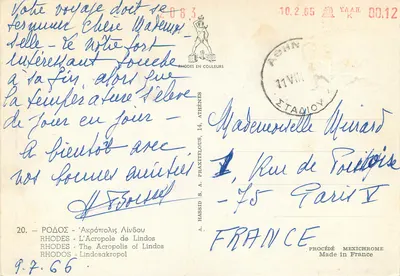 Votre voyage doit se
terminer Chère Mademoi-
selle - Le nôtre fort
intéressant touche
à sa fin, alors que
la température s'élève
de jour en jour -
A bientôt avec
nos bonnes amitiés
20. — ΡΟΔΟΣ - Ἀκρόπολις Λίνδου
RHODES - L'Acropole de Lindos
RHODES - The Acropolis of Lindos
RHODOS - Lindosakropol
9.7.66
RHODES EN COULEURS
A. HARRID & R. A. PRAXITELOUS, 14, ATHÈNES
00.12
ΑΘΗΝ
11 VII
ΣΤΑΔΙΟΥ
Mademoiselle Minard
1, Rue de Pontoise
-75 Paris V
FRANCE
PROCÉDÉ MEXICHROME
Made in France